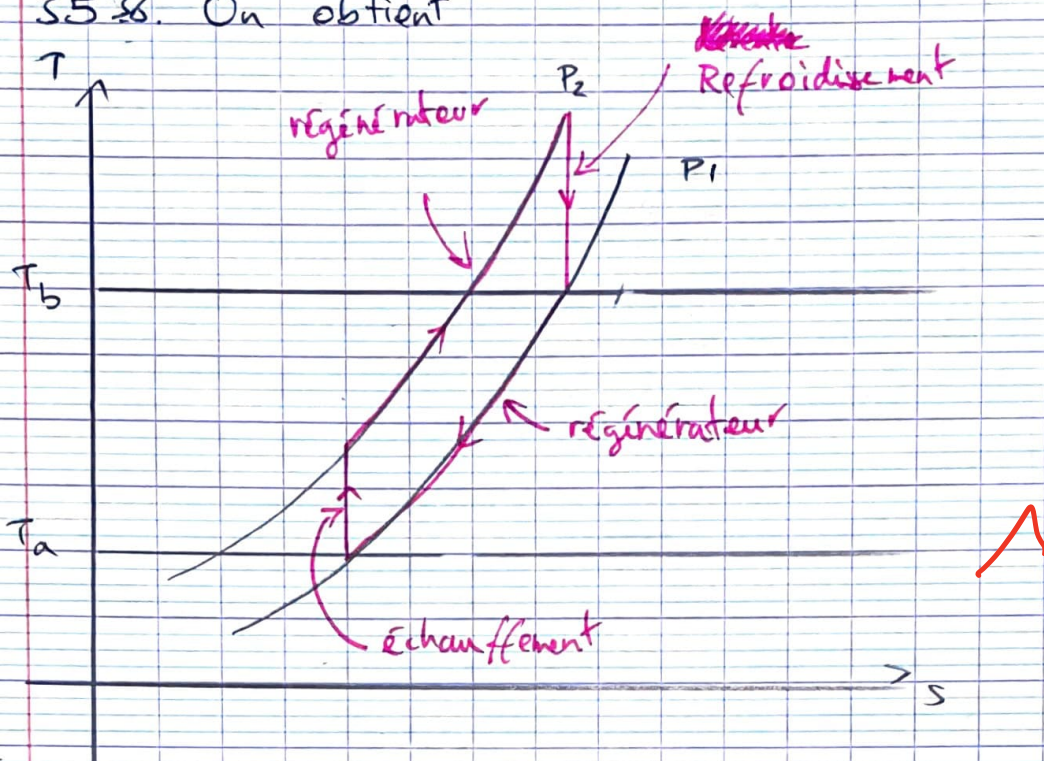 On obtient
T
P2
Refroidissement
régénérateur
P1
Tb
régénérateur
Ta
échauffement
s